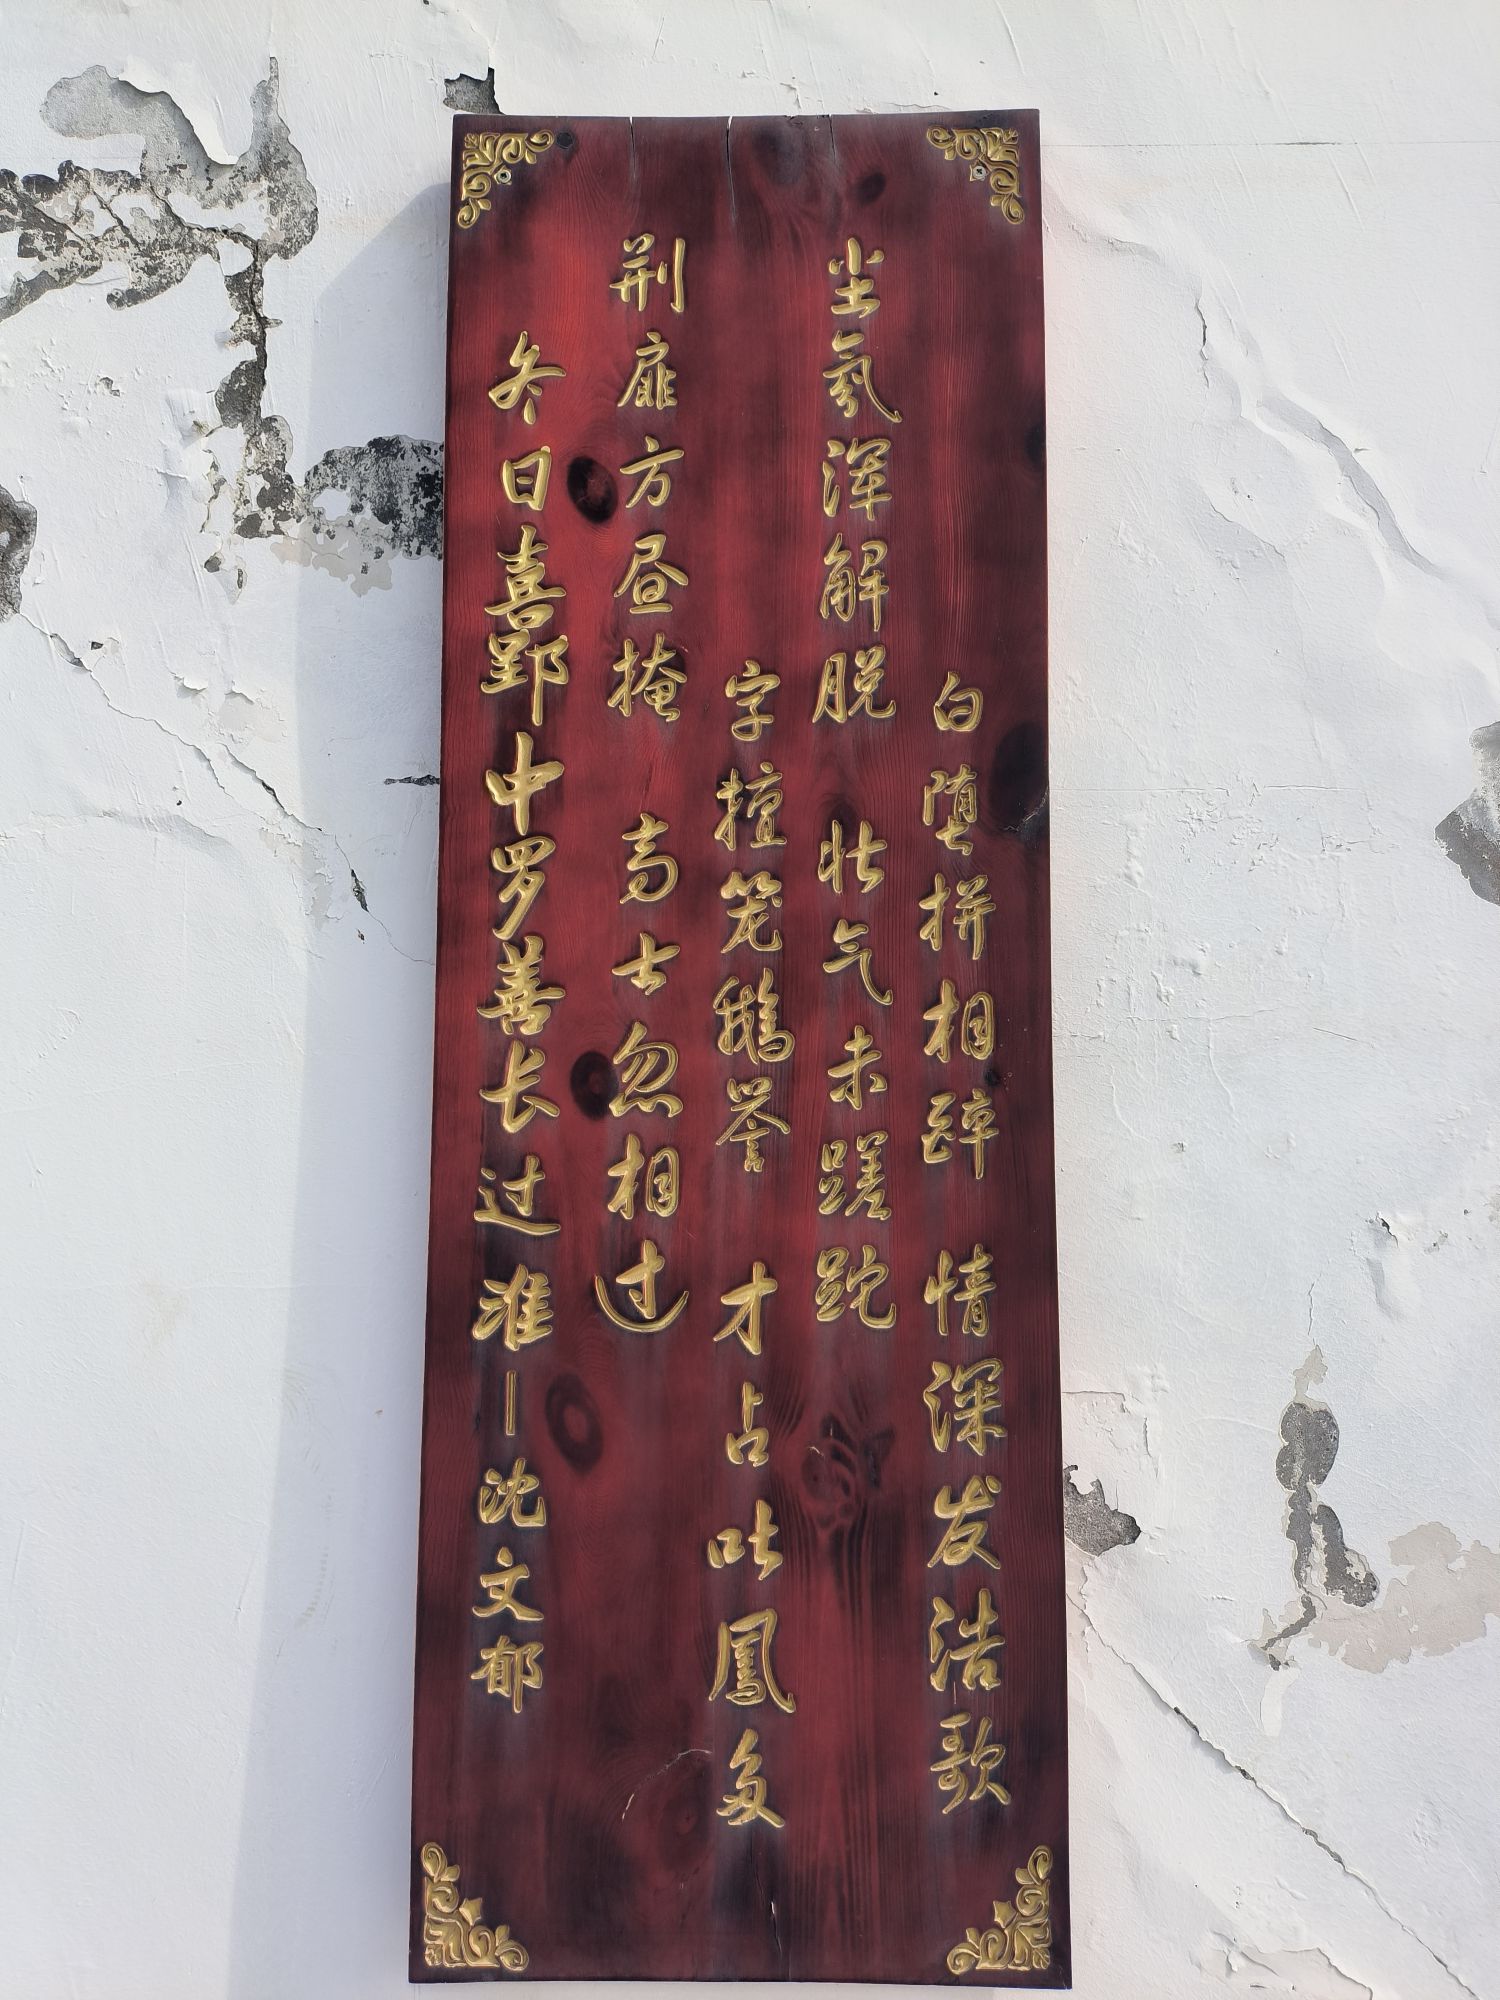 冬日喜郢中罗善长过淮—沈文郁
荆扉方昼掩 高士忽相过
字擅笼鹅誉 才占吐鳳多
尘氛浑解脱 壮气未蹉跎
白堕拼相醉 情深发浩歌